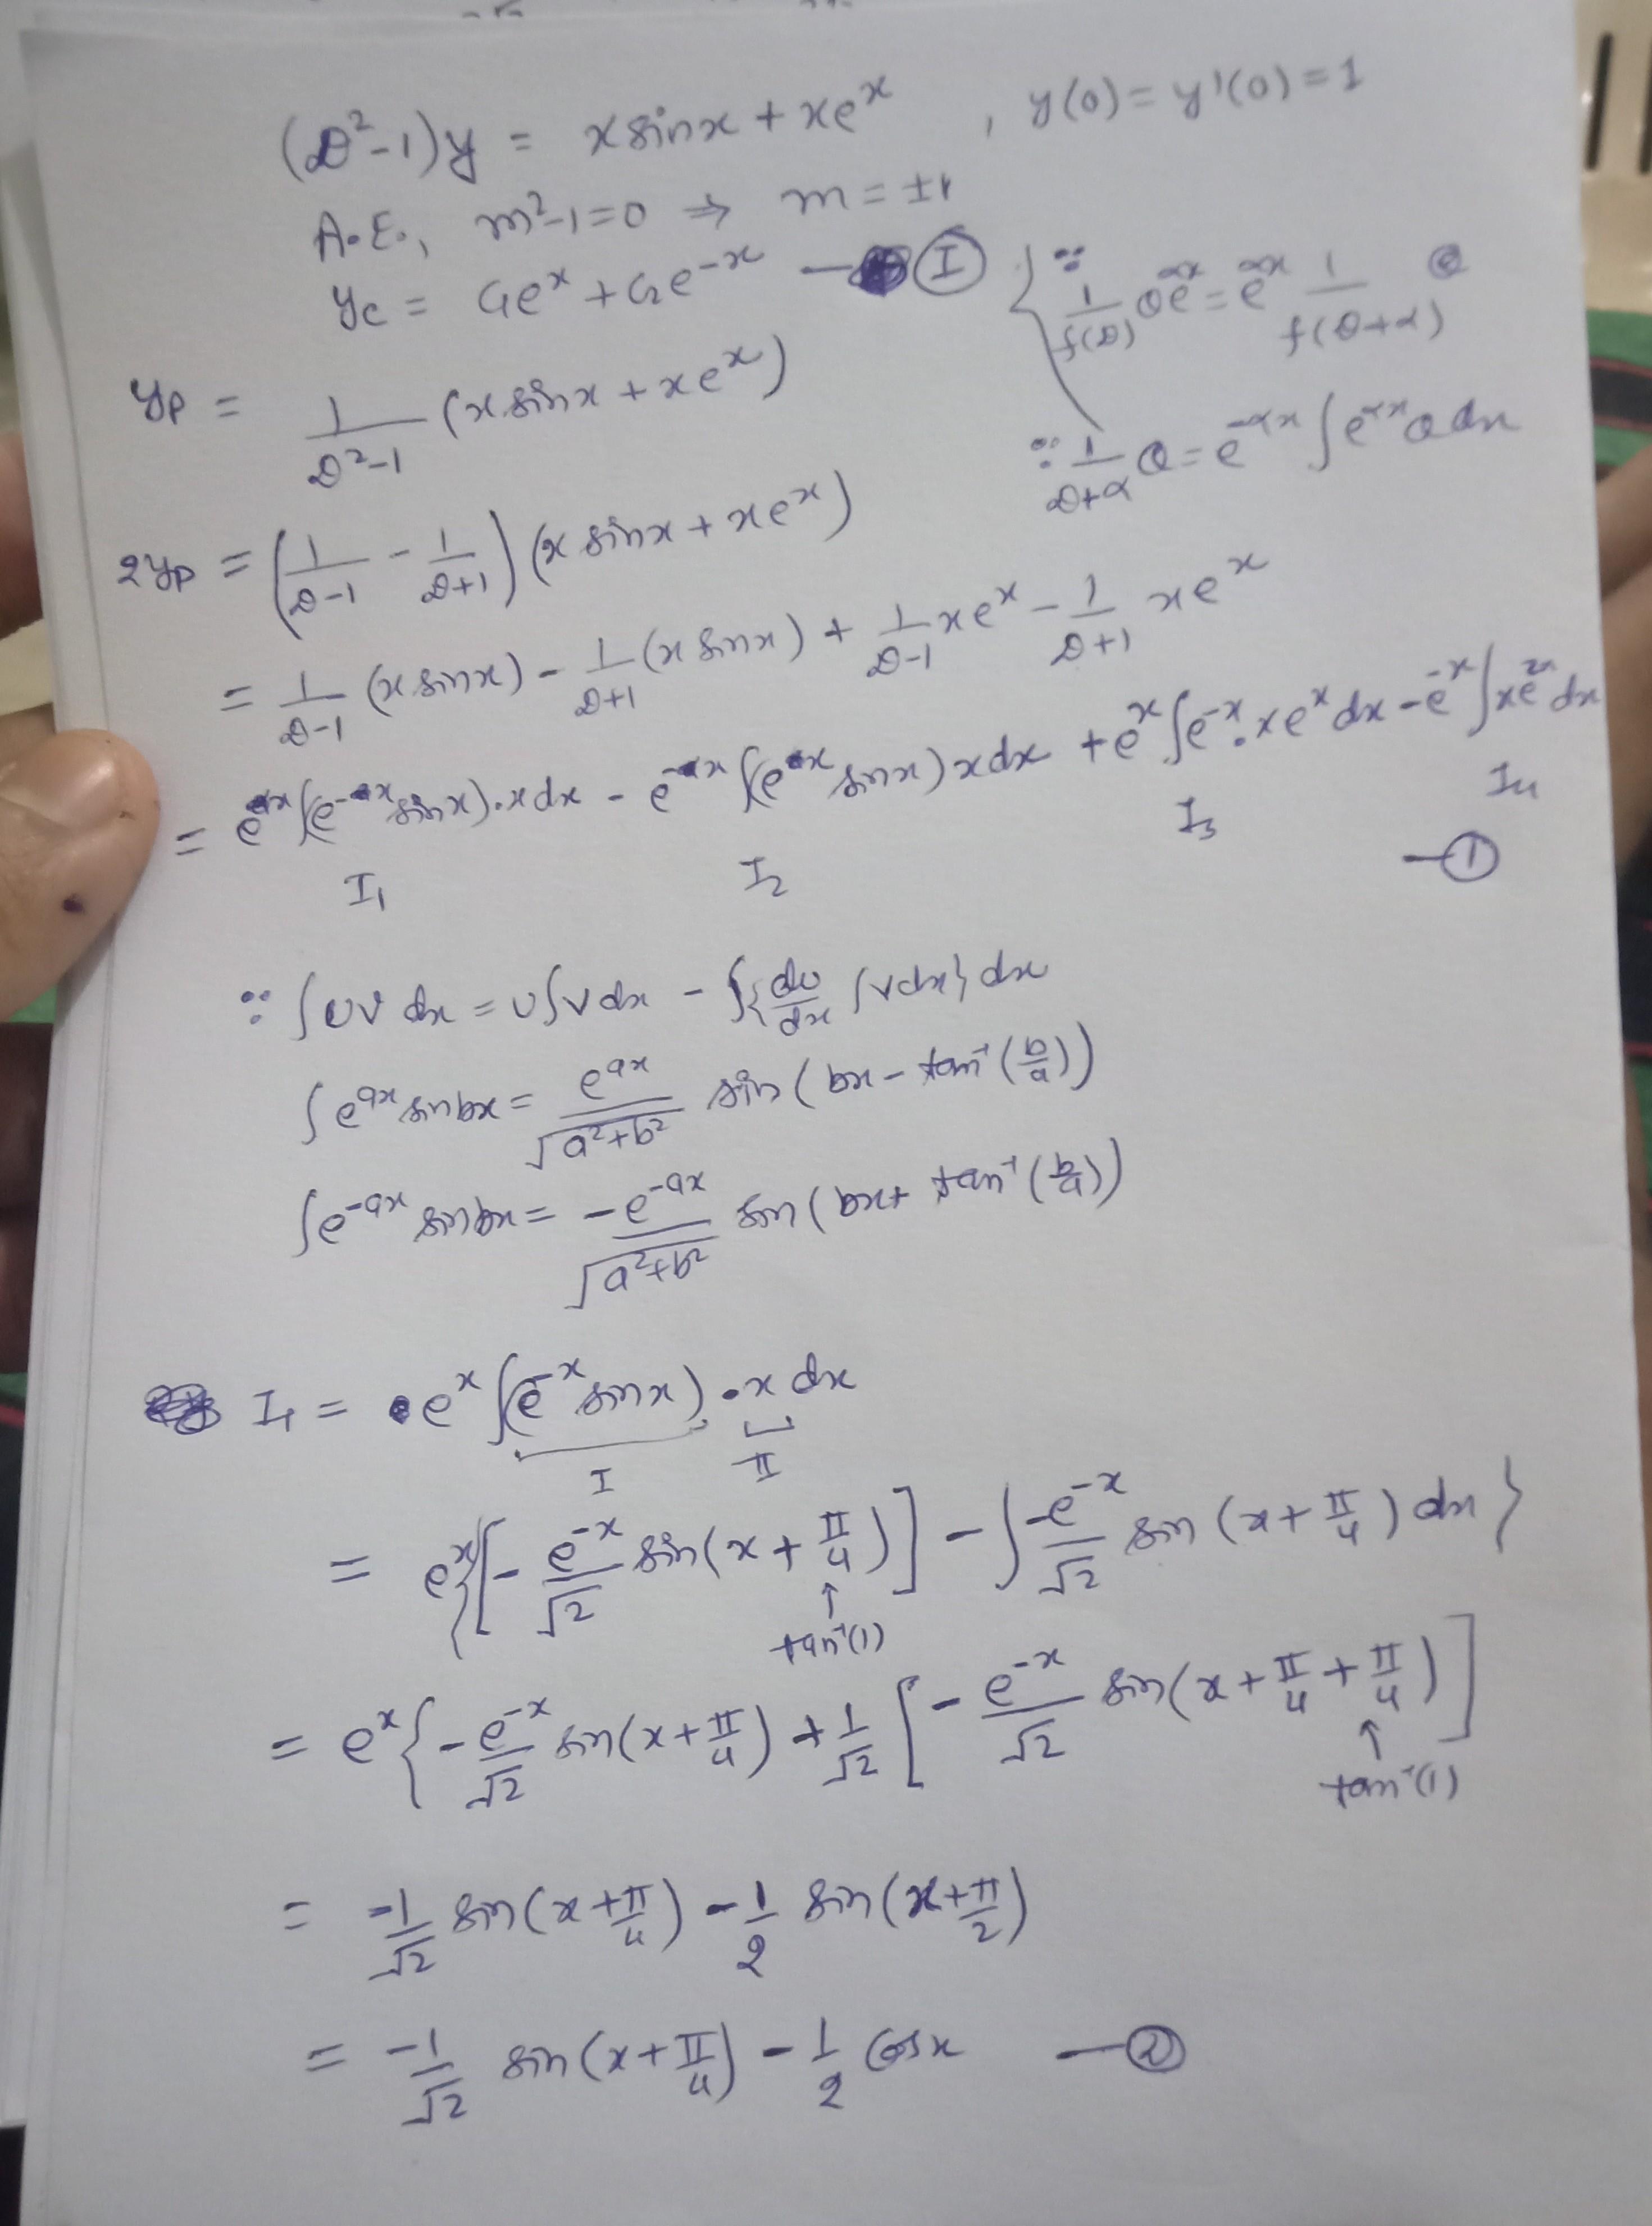 (D²-1)y = x sinx + xe^x , y(0) = y'(0) = 1
A.E., m²-1=0 ⇒ m = ±1
y_c = C₁e^x + C₂e^-x — Ⓘ
{ ∵ 1/f(D) Qe^αx = e^αx 1/f(D+α) Q
y_p = 1/(D²-1) (x sinx + xe^x)
∵ 1/(D+α) Q = e^-αx ∫e^αx Q dx
2y_p = (1/(D-1) - 1/(D+1)) (x sinx + xe^x)
= 1/(D-1) (x sinx) - 1/(D+1) (x sinx) + 1/(D-1) xe^x - 1/(D+1) xe^x
= e^x ∫(e^-x sinx).x dx - e^-x ∫(e^x sinx) x dx + e^x ∫e^-x . xe^x dx - e^-x ∫xe^2x dx
I₁ I₂ I₃ I₄
— ①
∵ ∫UV dx = U∫V dx - ∫{dU/dx ∫V dx} dx
∫e^ax sinbx = e^ax/√(a²+b²) sin(bx - tan⁻¹(b/a))
∫e^-ax sinbx = -e^-ax/√(a²+b²) sin(bx + tan⁻¹(b/a))
I₁ = e^x ∫(e^-x sinx) . x dx
I II
= e^x {[- e^-x/√2 sin(x + π/4)] - ∫ -e^-x/√2 sin(x + π/4) dx }
↑
tan⁻¹(1)
= e^x { - e^-x/√2 sin(x + π/4) + 1/√2 [ - e^-x/√2 sin(x + π/4 + π/4) ]
↑
tan⁻¹(1)
= -1/√2 sin(x + π/4) - 1/2 sin(x + π/2)
= -1/√2 sin(x + π/4) - 1/2 cosx — ②